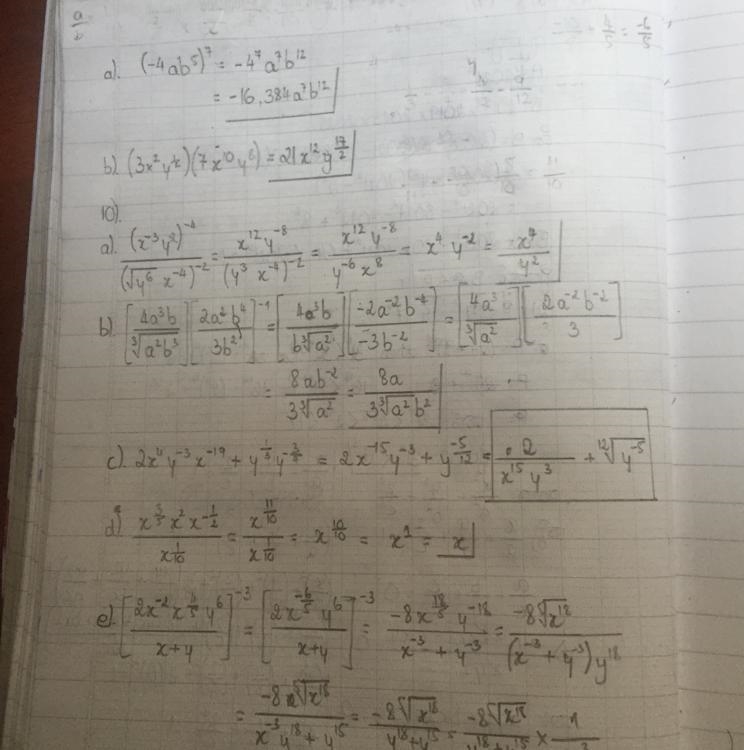 a/b
4/5 = -6/5
a). (-4ab⁵)⁷ = -4⁷a⁷b¹²
= -16,384a⁷b¹²
b). (3x²y^½)(7x¹⁰y⁸) = 21x¹²y^(17/2)
10).
a). (x⁻³y²)⁻⁴/(√y⁶ x⁻⁴)⁻² = x¹²y⁻⁸/(y³ x⁻⁴)⁻² = x¹²y⁻⁸/y⁻⁶x⁸ = x⁴y⁻² = x⁴/y²
b). [4a³b/∛a²b³][2a²b⁴/3b²]⁻¹ = [4a³b/b∛a²][-2a⁻²b⁻⁴/-3b⁻²] = [4a³/∛a²][2a⁻²b⁻²/3]
= 8ab⁻²/3∛a² = 8a/3∛a²b²
c). 2x⁴y⁻³x⁻¹⁹ + y^(1/3)y^(-3/4) = 2x⁻¹⁵y⁻³ + y^(-5/12) = 2/x¹⁵y³ + ¹²√y⁻⁵
d) x^(3/5)x²x^(-1/2)/x^(1/10) = x^(11/10)/x^(1/10) = x^(10/10) = x¹ = x
e). [2x⁻²x^(4/5)y⁶/x+y]⁻³ = [2x^(-6/5)y⁶/x+y]⁻³ = -8x^(18/5)y⁻¹⁸/x⁻³+y⁻³ = -8⁵√x¹⁸/(x⁻³+y⁻³)y¹⁸
= -8⁵√x¹⁸/x⁻³y¹⁸+y¹⁵ = -8⁵√x¹⁸/y¹⁸+y¹⁵ = -8⁵√x¹⁸/y¹⁸+y¹⁵ × 1